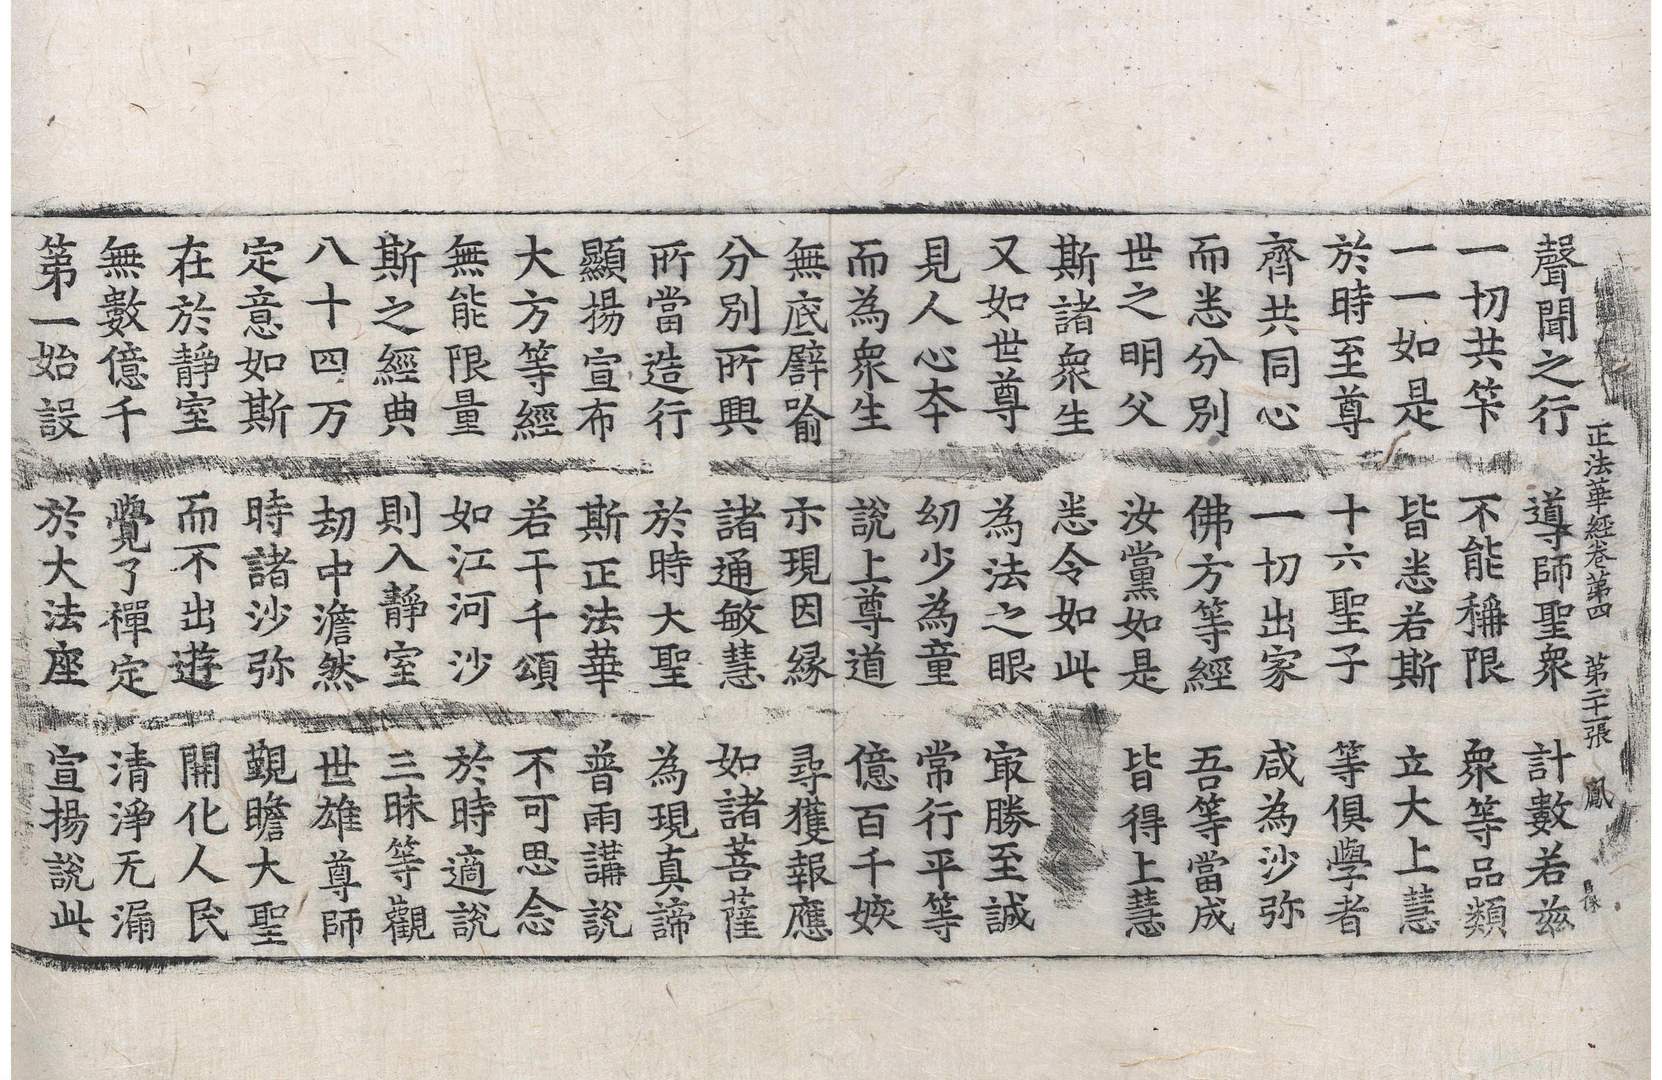 正法華經卷第四 第二十一張 鳳
聲聞之行 導師聖衆 計數若兹
一切共笇 不能稱限 衆等品類
一一如是 皆悉若斯 立大上慧
於時至尊 十六聖子 等俱學者
齊共同心 一切出家 咸為沙弥
而悉分別 佛方等經 吾等當成
世之明父 汝黨如是 皆得上慧
斯諸衆生 悉令如此
又如世尊 為法之眼 㝡勝至誠
見人心夲 幼少為童 常行平等
而為衆生 說上尊道 億百千姟
無底譬喻 示現因緣 尋獲報應
分別所興 諸通敏慧 如諸菩薩
所當造行 於時大聖 為現真諦
顯揚宣布 斯正法華 普雨講說
大方等經 若干千頌 不可思念
無能限量 如江河沙 於時適說
斯之經典 則入靜室 三昧等觀
八十四万 劫中澹然 世雄尊師
定意如斯 時諸沙弥 覲瞻大聖
在於靜室 而不出遊 開化人民
無數億千 覺了禪定 清淨无漏
第一始設 於大法座 宣揚說此